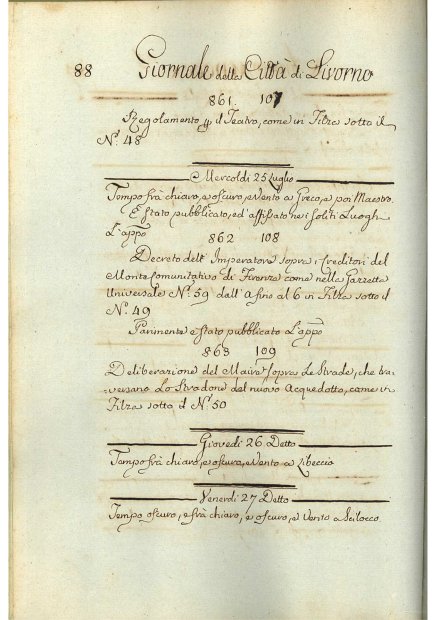 88 Giornale della Città di Livorno
861. 107
Regolamento p il Teatro, come in Filza sotto il
N.º 48
Mercoldì 25 Luglio
Tempo frà chiaro, e oscuro, e Vento a Greco, e poi Maestro.
È stato pubblicato, ed' affissato nei soliti Luoghi
L'appo
862 108
Decreto dell' Imperatore sopra i Creditori del
Monte Comunitativo di Firenze come nella Gazzetta
Universale N.º 59 dall' A fino al 6 in Filza sotto il
N.º 49
Parimente è stato pubblicato L'appo
863 109
Deliberazione del Maire sopra Le Strade, che tra-
versano Lo Stradone del nuovo Acquedotto, come in
Filza sotto il N.º 50
Giovedì 26 Detto
Tempo frà chiaro, e oscuro, e Vento a Libeccio
Venerdì 27 Detto
Tempo oscuro, e frà chiaro, e oscuro, e Vento a Scilocco.